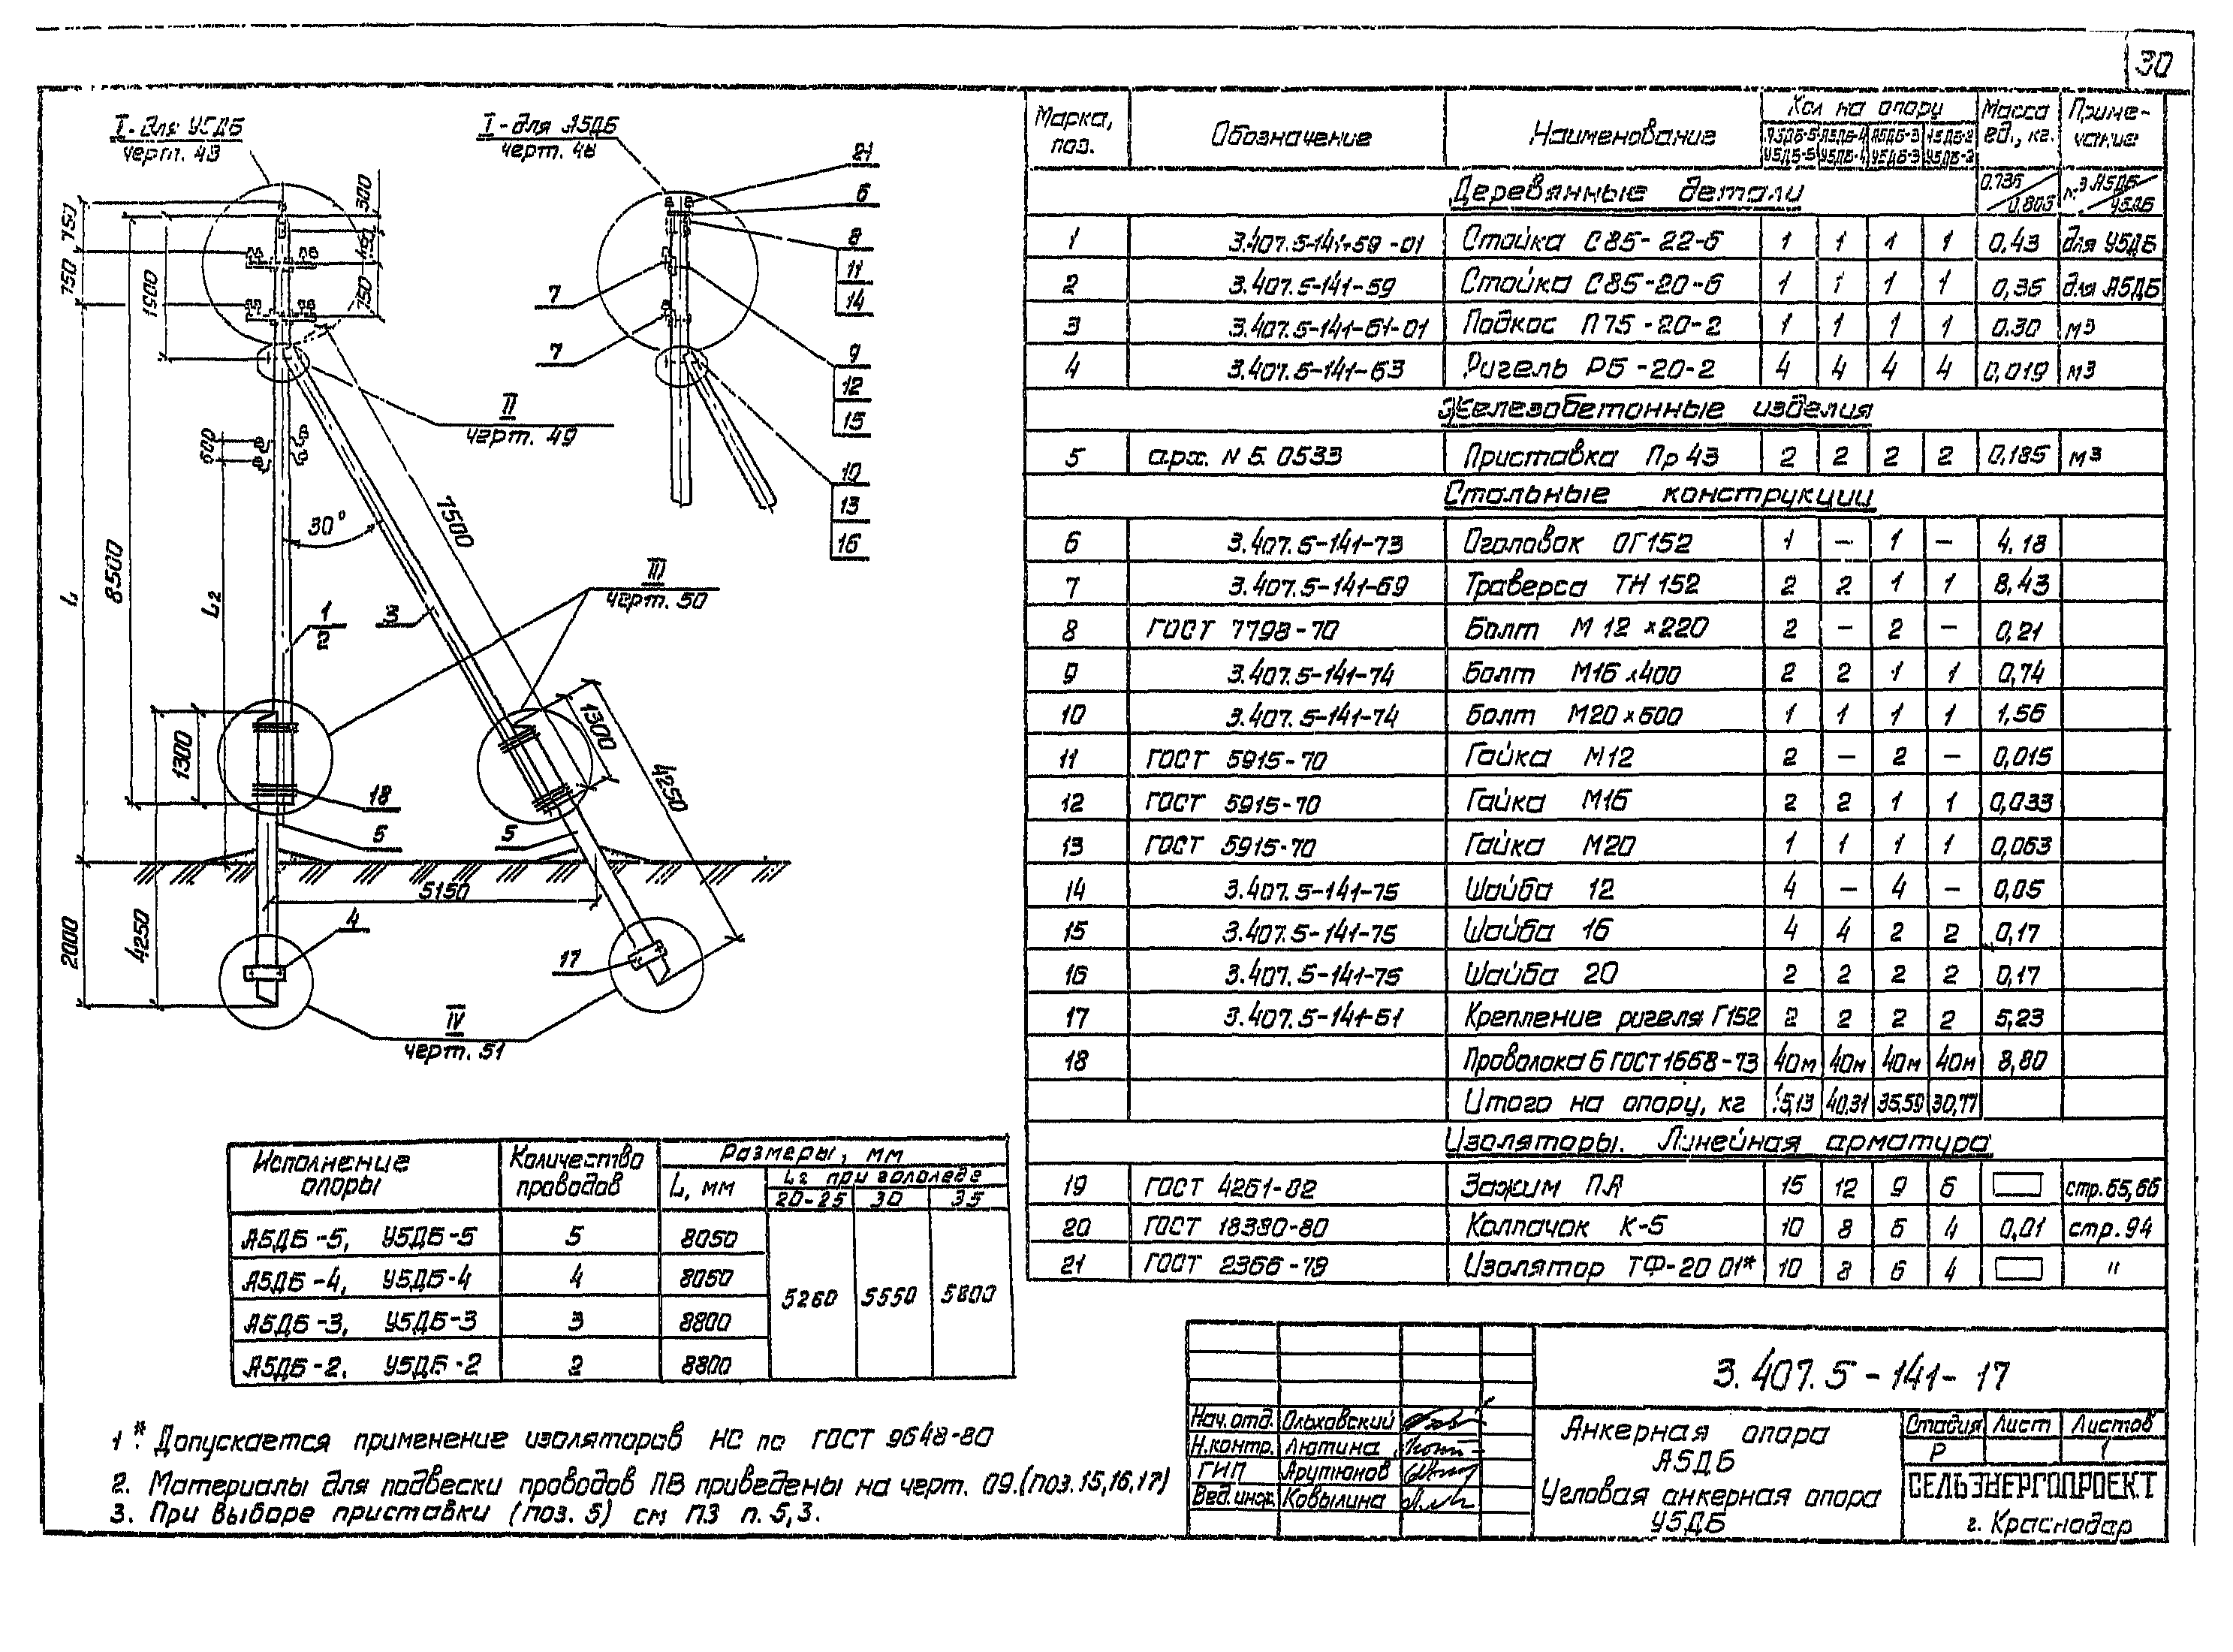 30
I - для У5ДБ
черт. 43
I - для А5ДБ
черт. 46
21
6
8
11
14
7
7
9
12
15
10
13
16
300
750
750
1500
750
8500
L
L2
30°
7500
II
черт. 49
III
черт. 50
1
2
3
1300
1300
4250
18
5
5
5150
2000
4250
4
17
IV
черт. 51
Марка, поз. Обозначение Наименование Кол на опору Масса ед., кг. Приме- чание
А5ДБ-5 А5ДБ-4 А5ДБ-3 А5ДБ-2
У5ДБ-5 У5ДБ-4 У5ДБ-3 У5ДБ-2
Деревянные детали 0.735 / 0.805 м3 А5ДБ / У5ДБ
1 3.407.5-141-59-01 Стойка С85-22-6 1 1 1 1 0,43 для У5ДБ
2 3.407.5-141-59 Стойка С85-20-6 1 1 1 1 0,36 для А5ДБ
3 3.407.5-141-61-01 Подкос П75-20-2 1 1 1 1 0.30 м3
4 3.407.5-141-63 Ригель Р5-20-2 4 4 4 4 0,019 м3
Железобетонные изделия
5 арх. N 5.0533 Приставка Пр 43 2 2 2 2 0,185 м3
Стальные конструкции
6 3.407.5-141-73 Оголовок ОГ152 1 – 1 – 4.18
7 3.407.5-141-69 Траверса ТН 152 2 2 1 1 8,43
8 ГОСТ 7798-70 Болт М 12 х220 2 – 2 – 0,21
9 3.407.5-141-74 Болт М16 х400 2 2 1 1 0,74
10 3.407.5-141-74 Болт М20х600 1 1 1 1 1,56
11 ГОСТ 5915-70 Гайка М12 2 – 2 – 0,015
12 ГОСТ 5915-70 Гайка М16 2 2 1 1 0,033
13 ГОСТ 5915-70 Гайка М20 1 1 1 1 0,063
14 3.407.5-141-75 Шайба 12 4 – 4 – 0,05
15 3.407.5-141-75 Шайба 16 4 4 2 2 0,17
16 3.407.5-141-75 Шайба 20 2 2 2 2 0,17
17 3.407.5-141-61 Крепление ригеля Г152 2 2 2 2 5,23
18 Проволока 6 ГОСТ1668-73 40м 40м 40м 40м 8,80
Итого на опору, кг 40.31 35.59 30,77
Изоляторы. Линейная арматура
19 ГОСТ 4261-82 Зажим ПА 15 12 9 6 стр.65,66
20 ГОСТ 18380-80 Колпачок К-5 10 8 6 4 0,01 стр.94
21 ГОСТ 2366-79 Изолятор ТФ-20 01* 10 8 6 4 "
Исполнение опоры Количество проводов Размеры, мм
L, мм L2 при гололеде
20-25 30 35
А5ДБ-5, У5ДБ-5 5 8050
А5ДБ-4, У5ДБ-4 4 8050
5260 5550 5800
А5ДБ-3, У5ДБ-3 3 8800
А5ДБ-2, У5ДБ-2 2 8800
1.* Допускается применение изоляторов НС по ГОСТ 9648-80
2. Материалы для подвески проводов ПВ приведены на черт. 09.(поз.15,16,17)
3. При выборе приставки (поз. 5) см ПЗ п. 5,3.
3.407.5-141-17
Нач.отд. Ольховский
Н.контр. Лютина
ГИП Арутюнов
Вед.инж. Ковылина
Анкерная опора
А5ДБ
Угловая анкерная опора
У5ДБ
Стадия Лист Листов
Р 1
СЕЛЬЭНЕРГОПРОЕКТ
г. Краснодар